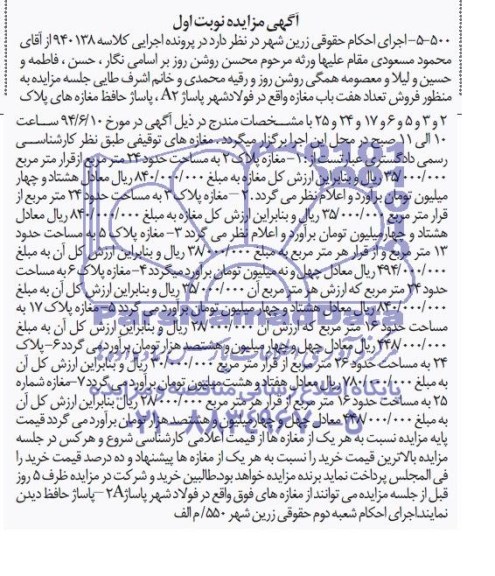 آگهی مزایده نوبت اول
۵۰۰-۵- اجرای احکام حقوقی زرین شهر در نظر دارد در پرونده اجرایی کلاسه ۹۴۰۱۳۸ از آقای
محمود مسعودی مقام علیها ورثه مرحوم محسن روشن روز بر اسامی نگار ، حسن ، فاطمه و
حسین و لیلا و معصومه همگی روشن روز و رقیه محمدی و خانم اشرف طایی جلسه مزایده به
منظور فروش تعداد هفت باب مغازه واقع در فولادشهر پاساژ A۲ ، پاساژ حافظ مغازه های پلاک
۲ و ۳ و ۵ و ۶ و ۱۷ و ۲۴ و ۲۵ با مشخصات مندرج در ذیل آگهی در مورخ ۹۴/۶/۱۰ ساعت
۱۰ الی ۱۱ صبح در محل این اجرا برگزار میگردد. مغازه های توقیفی طبق نظر کارشناسی
رسمی دادگستری عبارتست از : ۱- مغازه پلاک ۲ به مساحت حدود ۲۴ متر مربع از قرار متر مربع
۳۵/۰۰۰/۰۰۰ ریال و بنابراین ارزش کل مغازه به مبلغ ۸۴۰/۰۰۰/۰۰۰ ریال معادل هشتاد و چهار
میلیون تومان برآورد و اعلام نظر می گردد. ۲- مغازه پلاک ۳ به مساحت حدود ۲۴ متر مربع از
قرار متر مربع ۳۵/۰۰۰/۰۰۰ ریال و بنابراین ارزش کل مغازه به مبلغ ۸۴۰/۰۰۰/۰۰۰ ریال معادل
هشتاد و چهار میلیون تومان برآورد و اعلام نظر می گردد ۳- مغازه پلاک ۵ به مساحت حدود
۱۳ متر مربع و از قرار هر متر مربع به مبلغ ۳۸/۰۰۰/۰۰۰ ریال و بنابراین ارزش کل آن به مبلغ
۴۹۴/۰۰۰/۰۰۰ ریال معادل چهل و نه میلیون تومان برآورد میگردد ۴- مغازه پلاک ۶ به مساحت
حدود ۲۴ متر مربع که ارزش هر متر مربع آن ۳۵/۰۰۰/۰۰۰ ریال و بنابراین ارزش کل آن به مبلغ
۸۴۰/۰۰۰/۰۰۰ ریال معادل هشتاد و چهار میلیون تومان برآورد می گردد ۵- مغازه پلاک ۱۷ به
مساحت حدود ۱۶ متر مربع که ارزش آن ۲۸/۰۰۰/۰۰۰ ریال و بنابراین ارزش کل آن به مبلغ
۴۴۸/۰۰۰/۰۰۰ ریال معادل چهل و چهار میلیون و هشتصد هزار تومان برآورد می گردد ۶- پلاک
۲۴ به مساحت حدود ۲۶ متر مربع از قرار متر مربع ۳۰/۰۰۰/۰۰۰ ریال و بنابراین ارزش کل آن
به مبلغ ۷۸۰/۰۰۰/۰۰۰ ریال معادل هفتاد و هشت میلیون تومان برآورد می گردد ۷- مغازه شماره
۲۵ به مساحت حدود ۱۶ متر مربع از قرار هر متر مربع ۲۸/۰۰۰/۰۰۰ ریال بنابراین ارزش کل آن
به مبلغ ۴۴۸/۰۰۰/۰۰۰ معادل چهل و چهار میلیون و هشتصد هزار تومان برآورد می گردد قیمت
پایه مزایده نسبت به هر یک از مغازه ها از قیمت اعلامی کارشناسی شروع و هر کس در جلسه
مزایده بالاترین قیمت خرید را نسبت به هر یک از مغازه ها پیشنهاد و ده درصد قیمت خرید را
فی المجلس پرداخت نماید برنده مزایده خواهد بود. طالبین خرید و شرکت در مزایده ظرف ۵ روز
قبل از جلسه مزایده می توانند از مغازه های فوق واقع در فولاد شهر پاساژ ۲A - پاساژ حافظ دیدن
نمایند. اجرای احکام شعبه دوم حقوقی زرین شهر ۵۵۰/ م الف